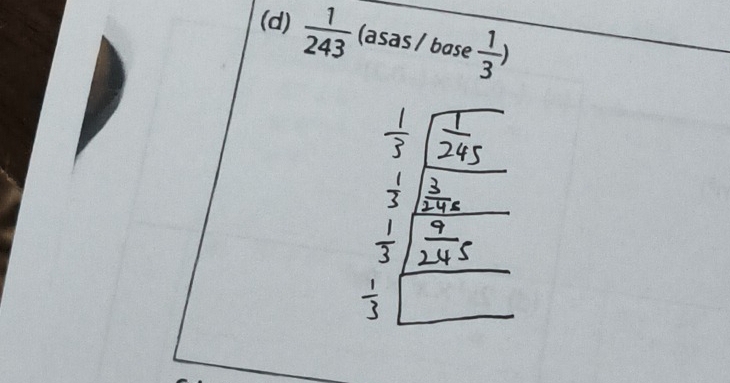 (d) 1/243 (asas / base 1/3)
1/3 1/245
1/3 3/245
1/3 9/245
1/3